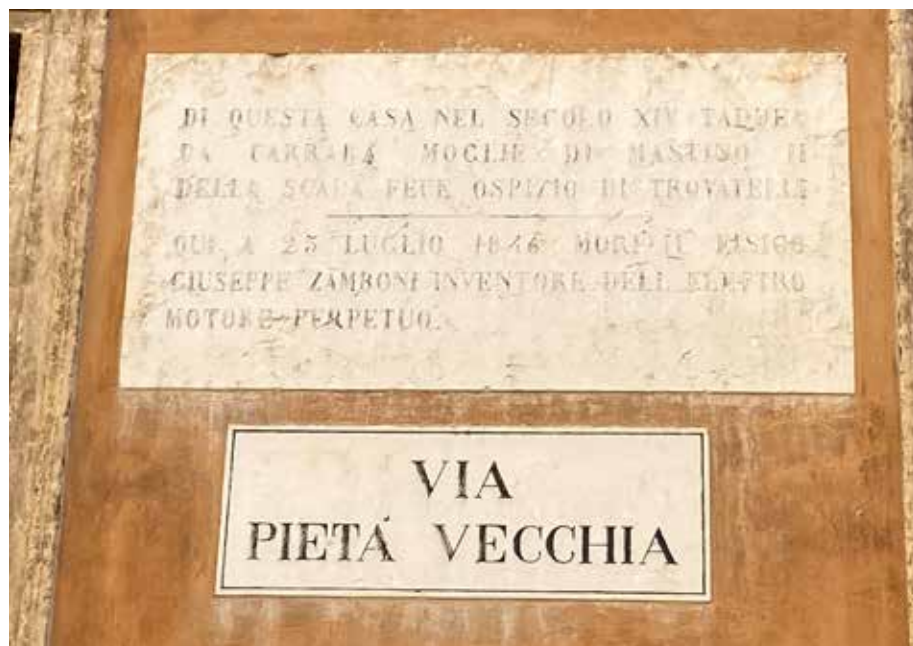 DI QUESTA CASA NEL SECOLO XIV TADDEA
DA CARRARA MOGLIE DI MASTINO II
DELLA SCALA FECE OSPIZIO DI TROVATELLI
QUI A 25 LUGLIO 1846 MORÌ IL FISICO
GIUSEPPE ZAMBONI INVENTORE DELL ELETTRO
MOTORE PERPETUO.
VIA
PIETÁ VECCHIA